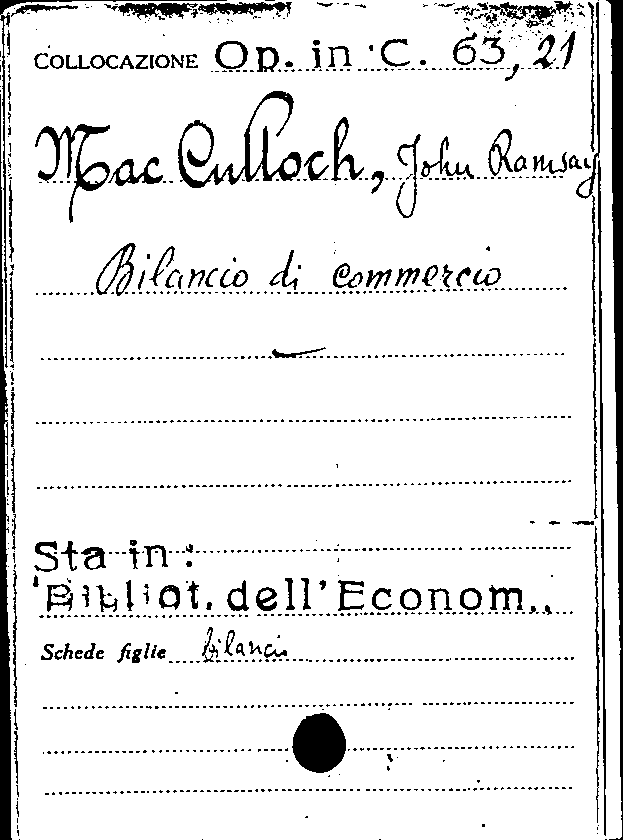 COLLOCAZIONE Op. in C. 63, 21
Mac Culloch, John Ramsay
Bilancio di commercio
Sta in :
Bibliot. dell'Econom..
Schede figlie bilancio